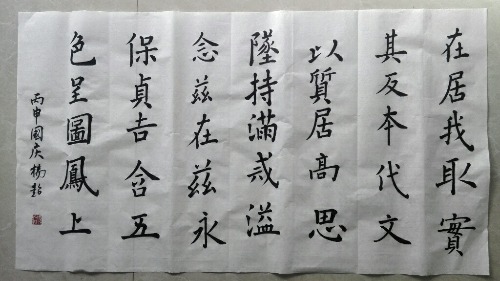 在居我取實
其反本代文
以質居高思
墜持滿戒溢
念茲在茲永
保貞吉含五
色呈圖鳳上
丙申國庆楊